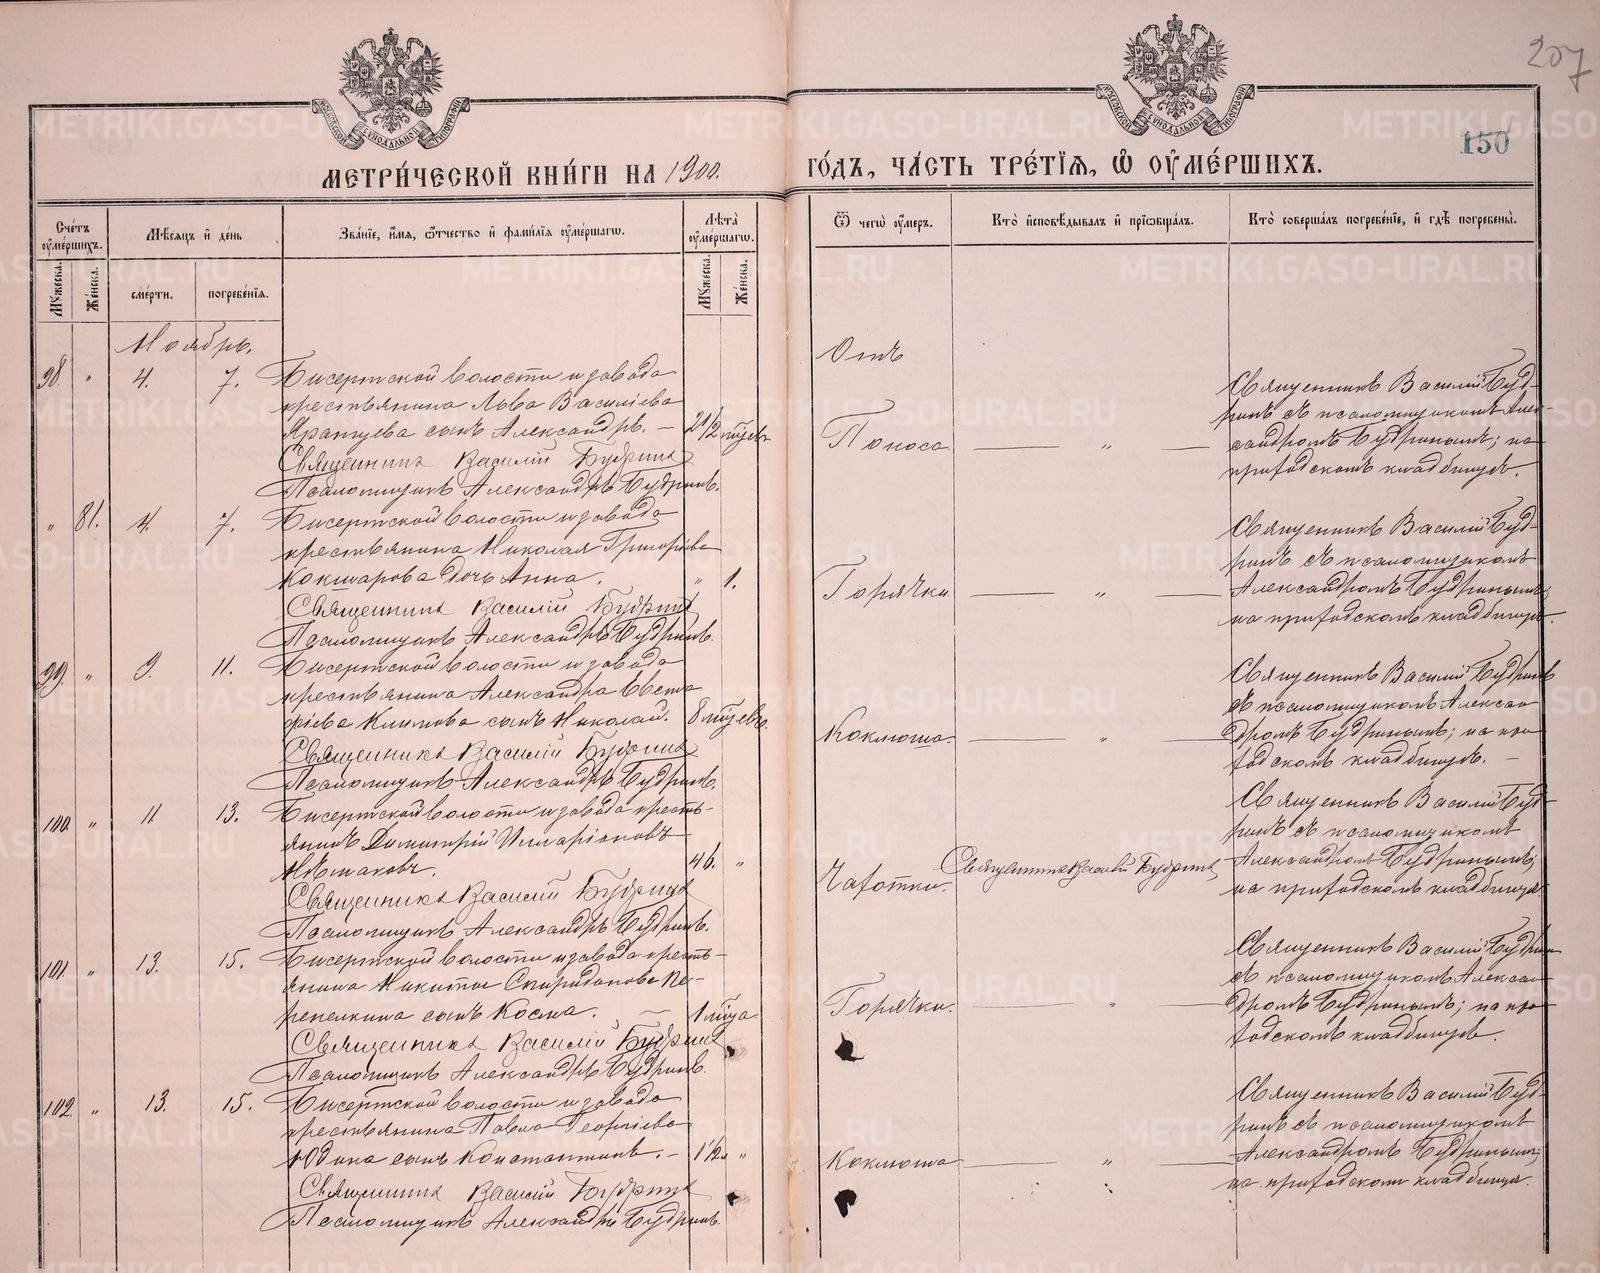 207
150
МЕТРИ́ЧЕСКОЙ КНИ́ГИ НА 1900.
ГО́ДЪ, ЧА́СТЬ ТРЕ́ТІЯ, Ѿ ОУМЕ́РШИХЪ.
Сче́тъ оуме́ршихъ.
Мꙋжеска.
Же́нска.
Мѣсяцъ и҆ день
сме́рти.
погребе́нїѧ.
Зва́нїе, и҆́мѧ, ѻ҆́тчество и҆ фами́лїѧ оуме́ршагѡ.
Лѣта̀ оуме́ршагѡ.
Мꙋжеска.
Же́нска.
Ѿ чегѡ̀ оу́меръ.
Кто̀ и҆сповѣ́дывалъ и҆ прїѡбща́лъ.
Кто̀ соверша́лъ погребе́нїе, и҆ гдѣ̀ погребены̀.
Ноябрь.
Отъ
98. " 4. 7. Бисертской волости и завода
крестьянина Льва Василіева
Яранцева сынъ Александръ. — 2 1/2 мѣсев.
Священникъ Василій Будринъ
Псаломщикъ Александръ Будринъ.
Поноса — " —
Священникъ Василій Буд-
ринъ съ псаломщикомъ Алек-
сандромъ Будринымъ; на
приходскомъ кладбищѣ.
" 81. 4. 7. Бисертской волости и завода
крестьянина Николая Григоріева
Кокшарова дочь Анна. " 1.
Священникъ Василій Будринъ
Псаломщикъ Александръ Будринъ.
Горячки — " —
Священникъ Василій Буд-
ринъ съ псаломщикомъ
Александромъ Будринымъ;
на приходскомъ кладбищѣ.
99. " 9. 11. Бисертской волости и завода
крестьянина Александра Евста
фіева Климова сынъ Николай. 8 мѣсевъ.
Священникъ Василій Будринъ
Псаломщикъ Александръ Будринъ.
Коклюша — " —
Священникъ Василій Будринъ
съ псаломщикомъ Алексан
дромъ Будринымъ; на при
ходскомъ кладбищѣ. —
100. " 11 13. Бисертской волости и завода кресть-
янинъ Димитрій Илларіоновъ
46. "
Священникъ Василій Будринъ
Псаломщикъ Александръ Будринъ.
Чахотки.
Священникъ Василій Будринъ
Священникъ Василій Буд-
ринъ съ псаломщикомъ
Александромъ Будринымъ;
на приходскомъ кладбищѣ
101. " 13. 15. Бисертской волости и завода кресть-
янина Никиты Спиридонова Пе-
репелкина сынъ Косма. — 1 мѣца
Священникъ Василій Будринъ
Псаломщикъ Александръ Будринъ.
Горячки. — "
Священникъ Василій Будрин
съ псаломщикомъ Алексан
дромъ Будринымъ; на при
ходскомъ кладбищѣ.
102. " 13. 15. Бисертской волости и завода
крестьянина Павла Георгіева
Юдина сынъ Константинъ. — 1 1/2. "
Священникъ Василій Будринъ
Псаломщикъ Александръ Будринъ.
Коклюша — " —
Священникъ Василій Буд-
ринъ съ псаломщикомъ
Александромъ Будринымъ;
на приходскомъ кладбищѣ.
METRIKI.GASO-URAL.RU